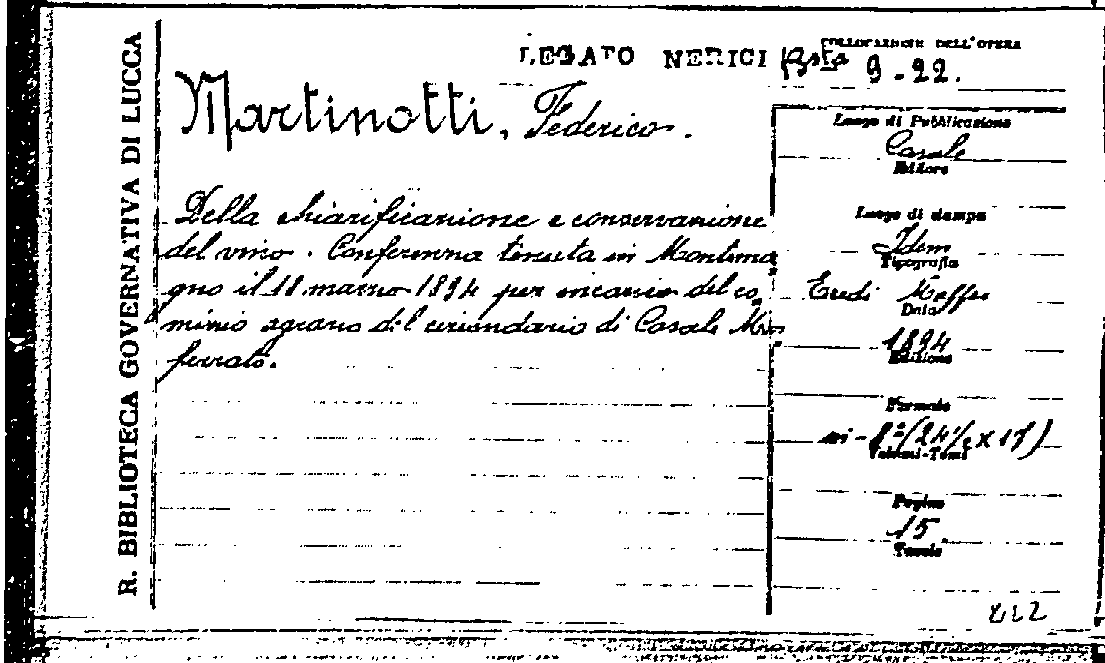 R. BIBLIOTECA GOVERNATIVA DI LUCCA
LEGATO NERICI
COLLOCAZIONE DELL'OPERA
Bsta 9-22.
Martinotti, Federico.
Della chiarificazione e conservazione
del vino. Conferenza tenuta in Montema
gno il 11 marzo 1894 per incarico del co
mizio agrario del circondario di Casale Mon
ferrato.
Luogo di Pubblicazione
Casale
Editore
Luogo di stampa
Idem
Tipografia
Eredi Maffei
Data
1894
Edizione
Formato
in-8° (24½ x 17)
Volumi-Tomi
Pagine
15
Tavole